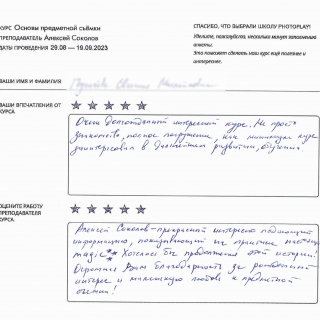 КУРС Основы предметной съёмки
ПРЕПОДАВАТЕЛЬ Алексей Соколов
ДАТЫ ПРОВЕДЕНИЯ 29.08 — 19.09.2023
СПАСИБО, ЧТО ВЫБРАЛИ ШКОЛУ PHOTOPLAY!
Уделите, пожалуйста, несколько минут заполнению
анкеты.
Это поможет сделать наш курс ещё полезнее и
интереснее.
ВАШИ ИМЯ И ФАМИЛИЯ
ВАШИ ВПЕЧАТЛЕНИЯ ОТ
КУРСА
Очень интересный курс. Не просто
знакомство, полное погружение, как минимум курс
заинтересовал в дальнейшем развитии, обучении.
ОЦЕНИТЕ РАБОТУ
ПРЕПОДАВАТЕЛЯ
КУРСА
Алексей Соколов - прекрасный интересно
информацию, показывающий на практике
magic ** Хотелось бы продолжения этой истории!
Огромная Вам благодарность за
интерес и любовь к предметной
съемки!